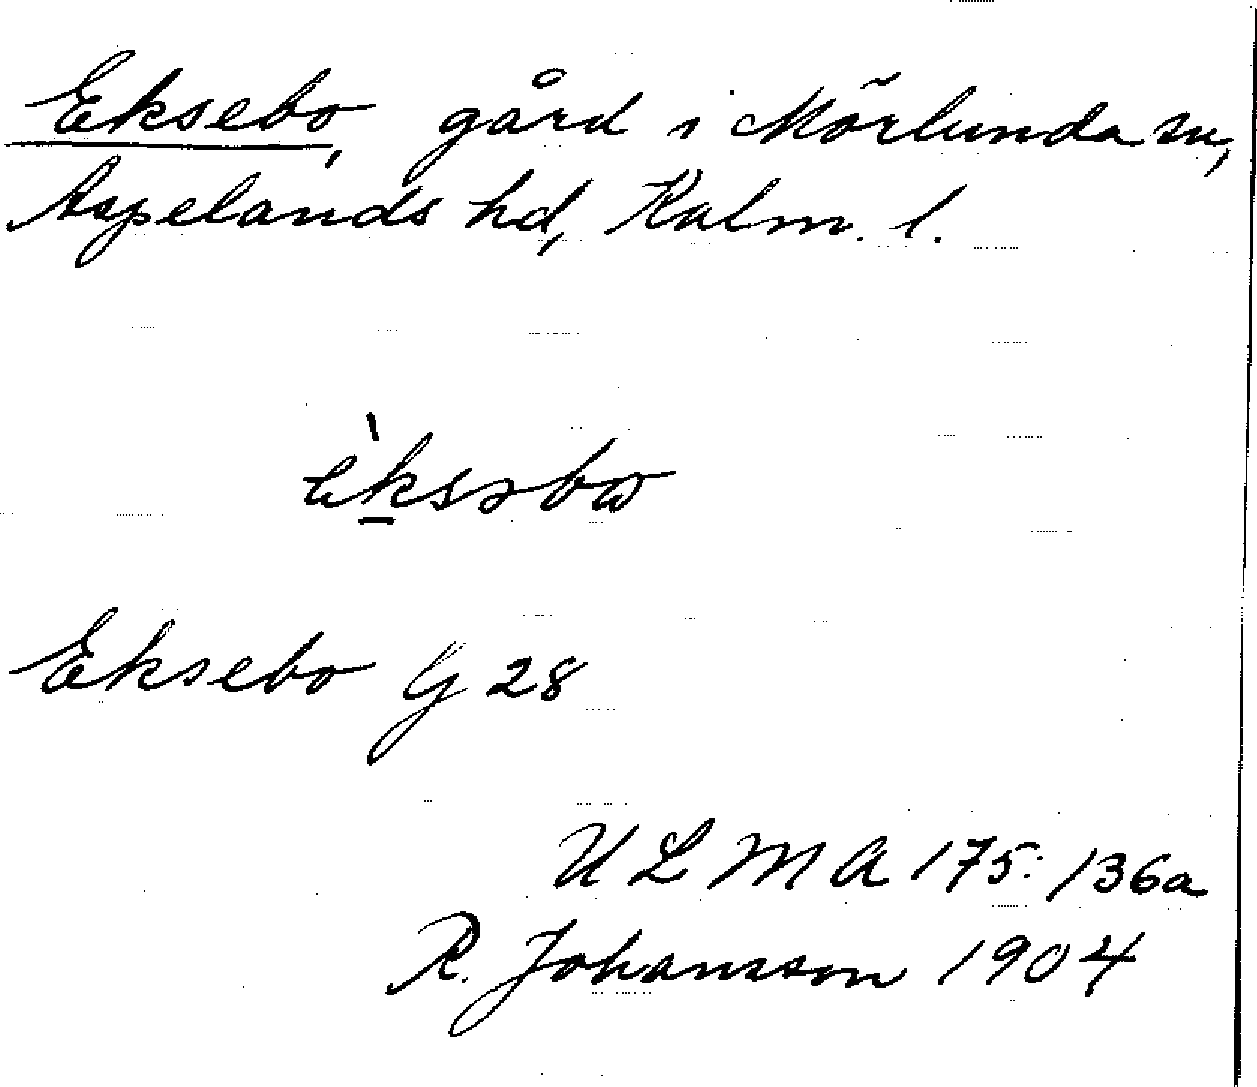 Eksebo, gård i Mörlunda sn,
Aspelands hd, Kalm. l.
èksəbω
Eksebo G 28
ULMA 175:136a
R. Johansson 1904